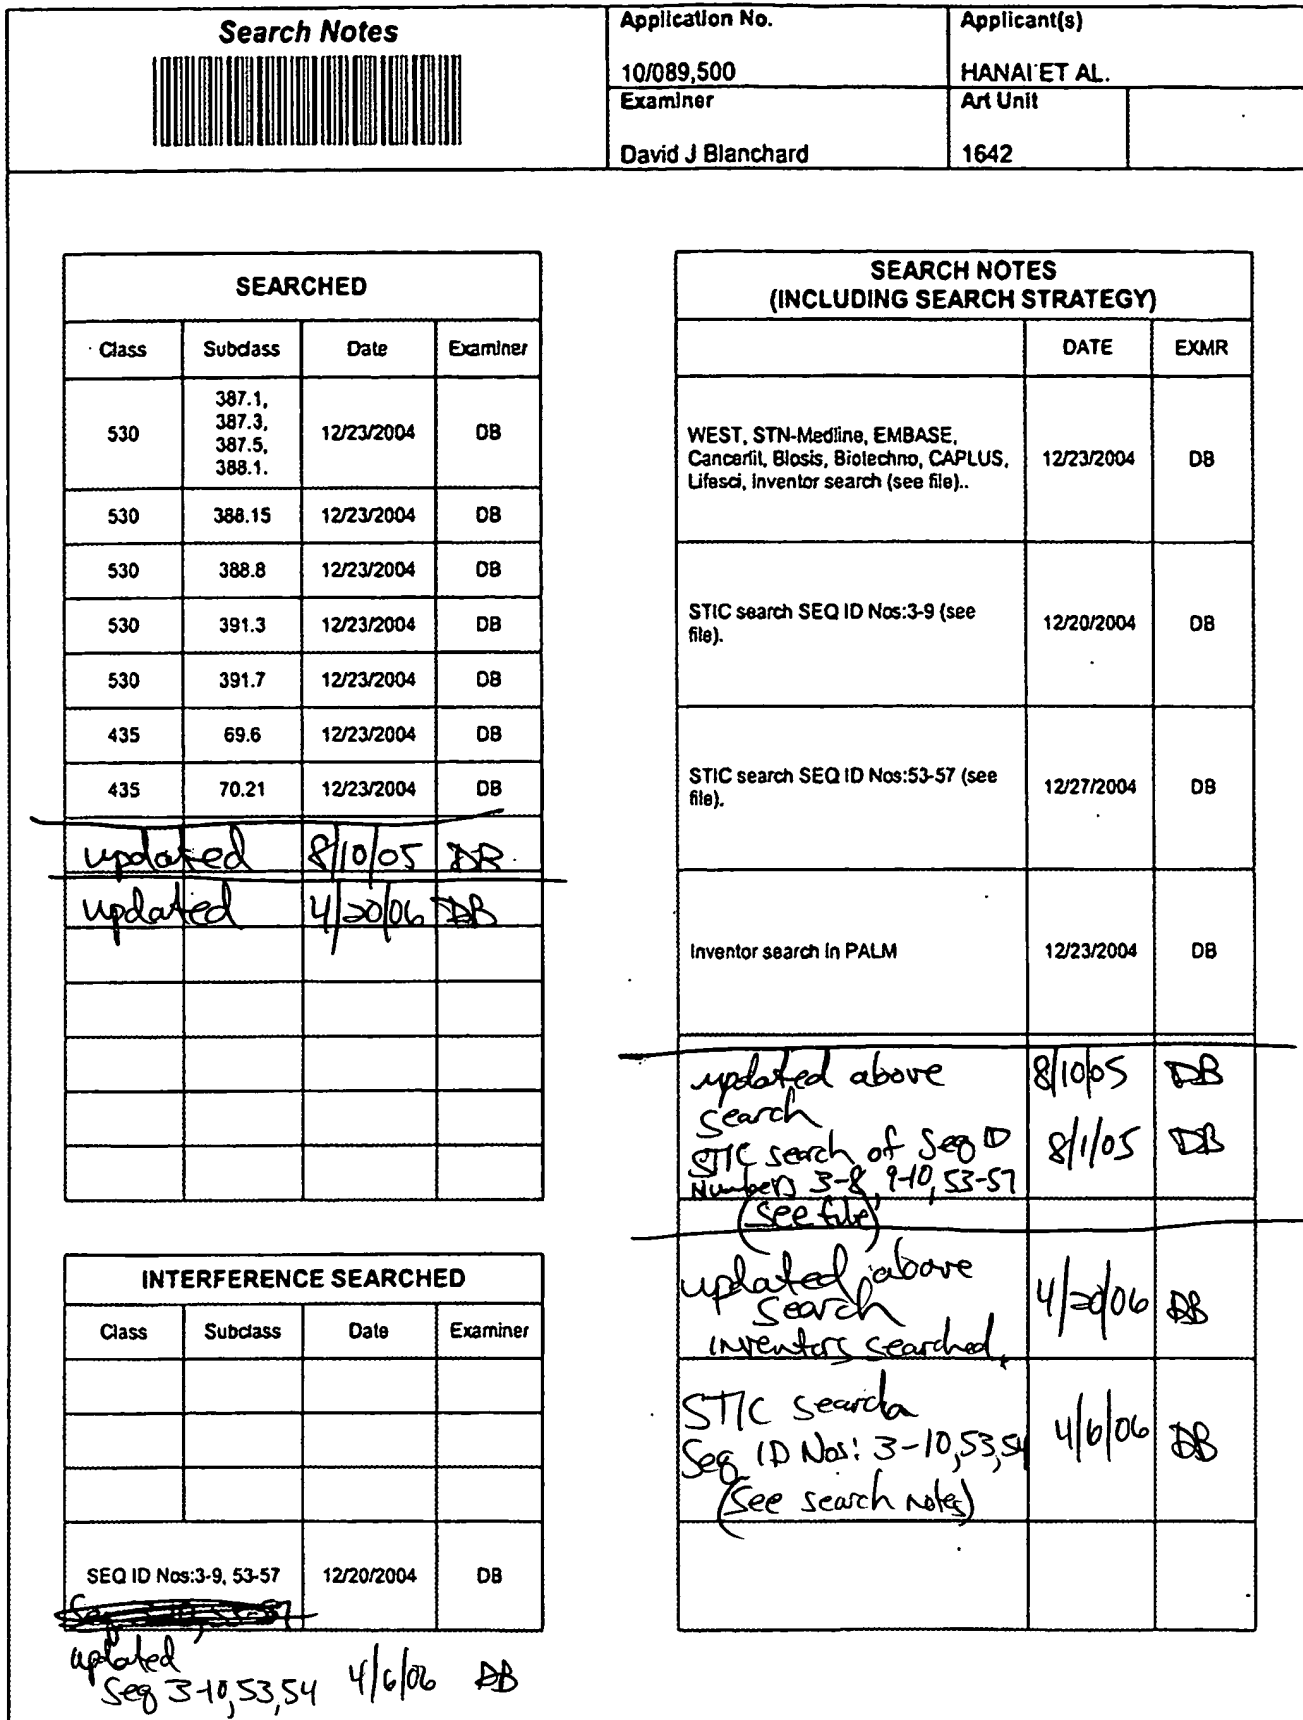 Search Notes
Application No.
10/089,500
Applicant(s)
HANAI ET AL.
Examiner
David J Blanchard
Art Unit
1642
SEARCHED
Class Subclass Date Examiner
530 387.1, 387.3, 387.5, 388.1. 12/23/2004 DB
530 388.15 12/23/2004 DB
530 388.8 12/23/2004 DB
530 391.3 12/23/2004 DB
530 391.7 12/23/2004 DB
435 69.6 12/23/2004 DB
435 70.21 12/23/2004 DB
updated 8/10/05 DB
updated 4/20/06 DB
INTERFERENCE SEARCHED
Class Subclass Date Examiner
SEQ ID Nos:3-9, 53-57 12/20/2004 DB
updated
Seq 3-10, 53, 54 4/6/06 DB
SEARCH NOTES
(INCLUDING SEARCH STRATEGY)
DATE EXMR
WEST, STN-Medline, EMBASE,
Cancerlit, Biosis, Biotechno, CAPLUS, 12/23/2004 DB
Lifesci, Inventor search (see file)..
STIC search SEQ ID Nos:3-9 (see
file). 12/20/2004 DB
STIC search SEQ ID Nos:53-57 (see
file). 12/27/2004 DB
Inventor search in PALM 12/23/2004 DB
updated above 8/10/05 DB
search
STIC search of Seq ID 8/1/05 DB
Numbers 3-8, 9-10, 53-57
(see file)
updated above
search 4/20/06 DB
inventors searched.
STIC search
Seq ID Nos: 3-10, 53, 54 4/6/06 DB
(See search notes)